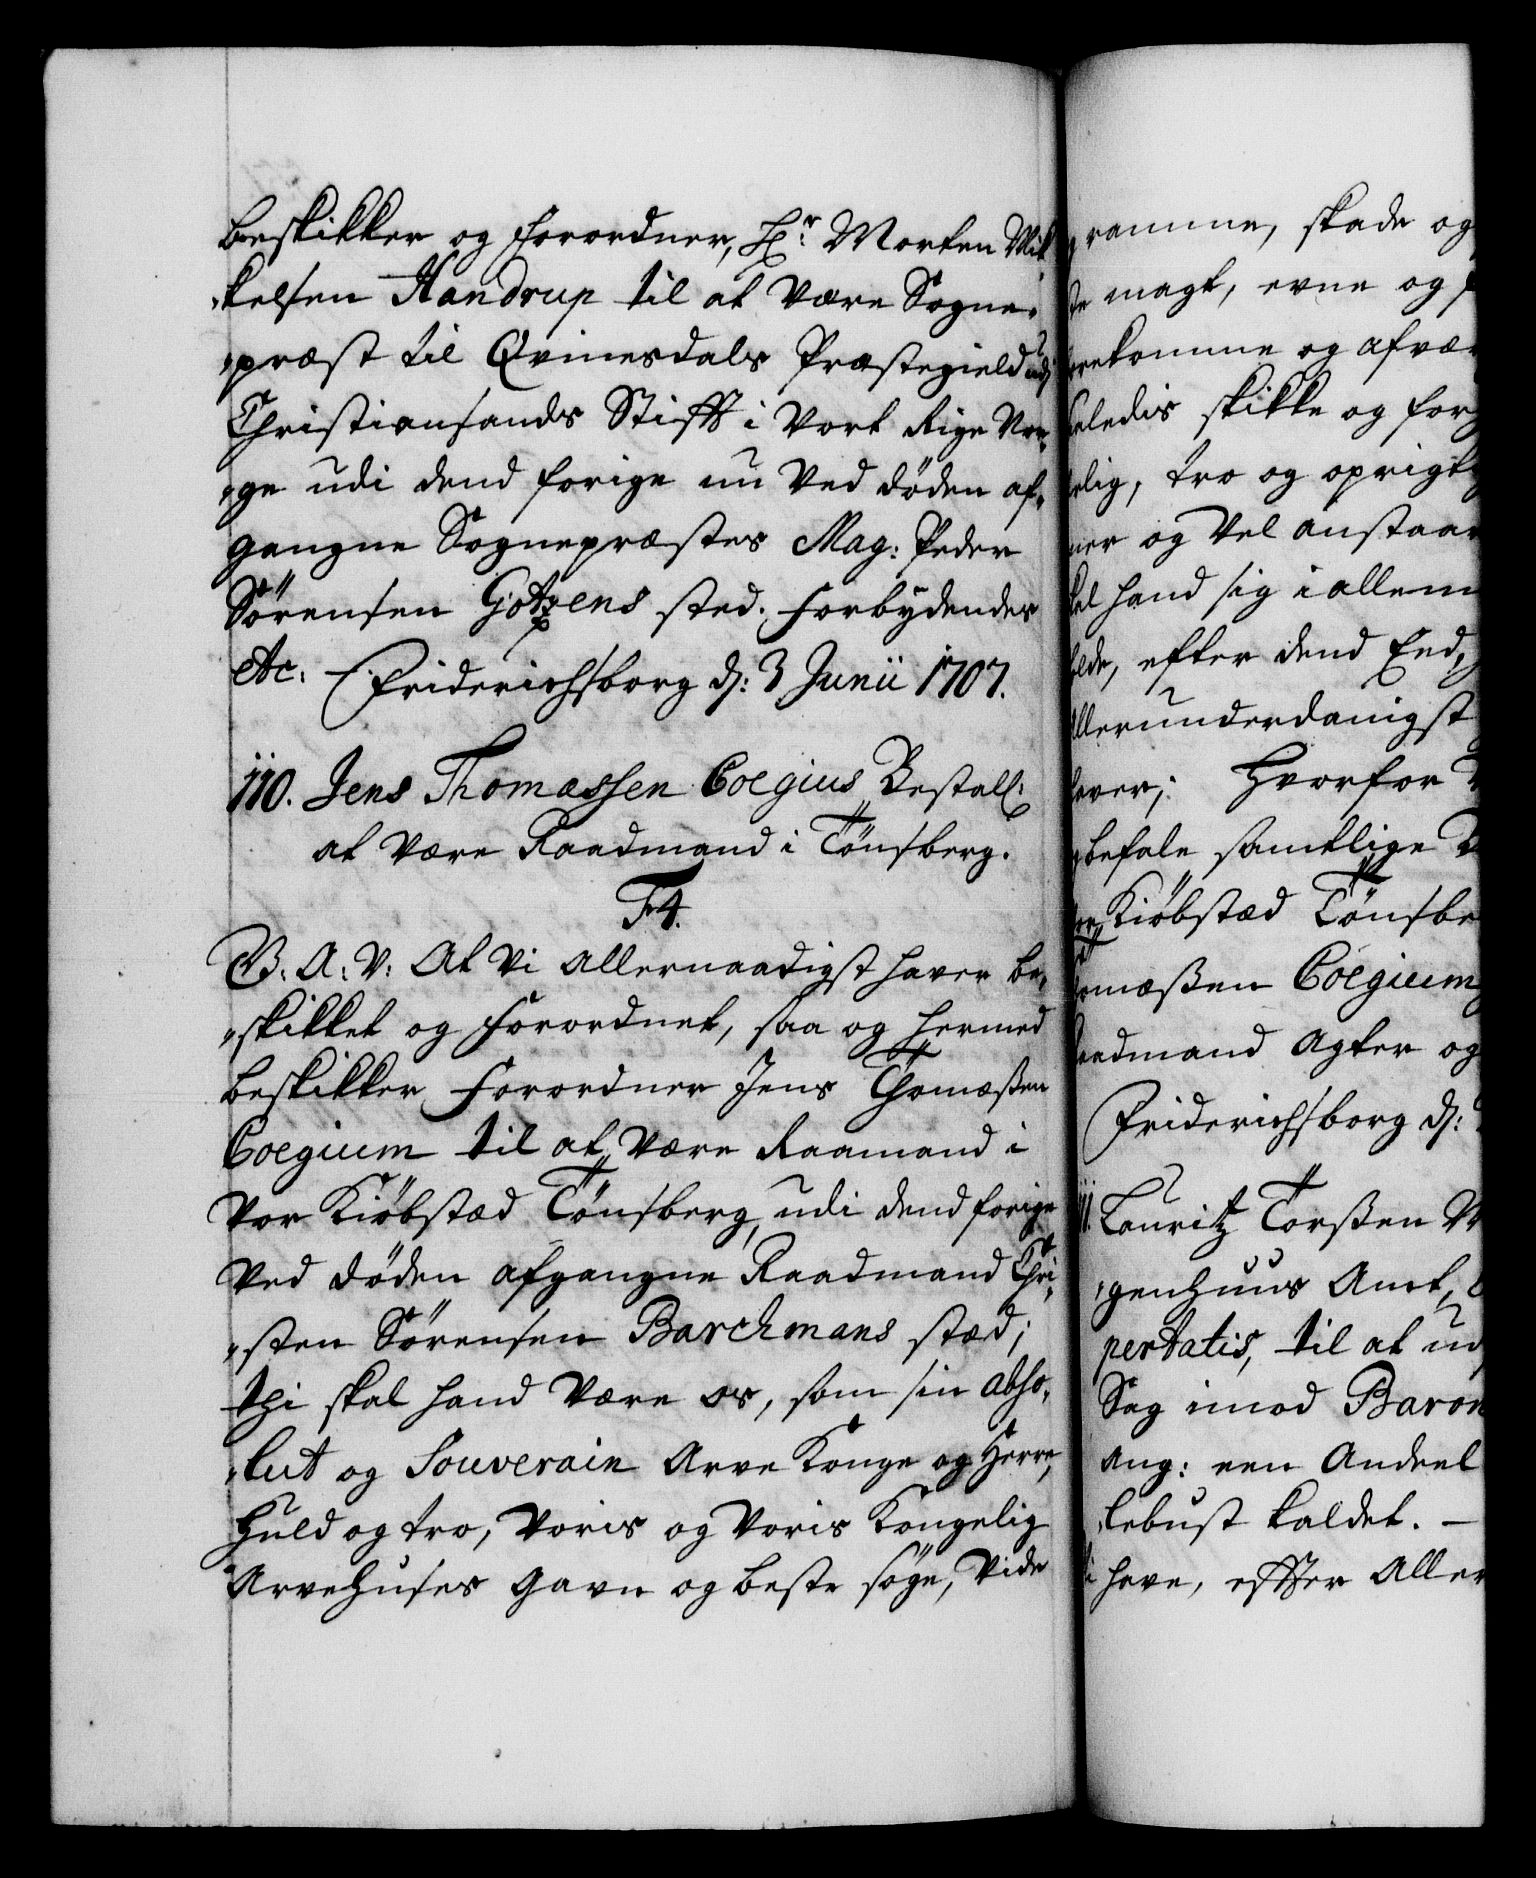 beskikker og forordner, Hr: Morten Mik
"kelsen Handrup til at være Sogne-
"præst til Qvinesdals Præstegield udj
Christiansands Stifft i Vort Rige Nor-
"ge udi dend forige nu ved döden af-
gangne Sognepræstes Mag: Peder
Sörensen Gotzens sted. Forbydendes
etc: Friderichsborg d: 3 Junii 1707.
110. Jens Thomæssen Coegius Bestall:
at være Raadmand i Tönsberg.
F4.
G. A. V: At Vi allernaadigst haver be-
"skikket og forordnet, saa og hermed
beskikker forordner Jens Thomæßen
Coegium til at være Raamand i
vor Kiöbstæd Tönsberg, udi dend forige
ved döden afgangne Raadmand Chri-
"sten Sörensen Barchmans stæd;
thi skal hand være os, som sin abso-
"lut og Souverain Arve Konge og Herre,
huld og tro, voris og voris Kongelig
Arvehuses gavn og beste söge, vide
ramme, skade og
magt, evne og
rekomme og afvær
ledis skikke og for
lig, tro og oprigt
ner og vel anstaar
hand sig i allem
lde, efter dend Eed,
Allerunderdanigst
ver; Hvorfor
befale samtlige
Kiöbstæd Tönsbe
omæßen Coegium
aadmand agter og
Friderichsborg d:
111. Lauritz Torßen
"genhuus Amt,
pertatis, til at ud
Sag imod Baron
ang: een Andeel
lebust kaldet. -
have, effter Aller